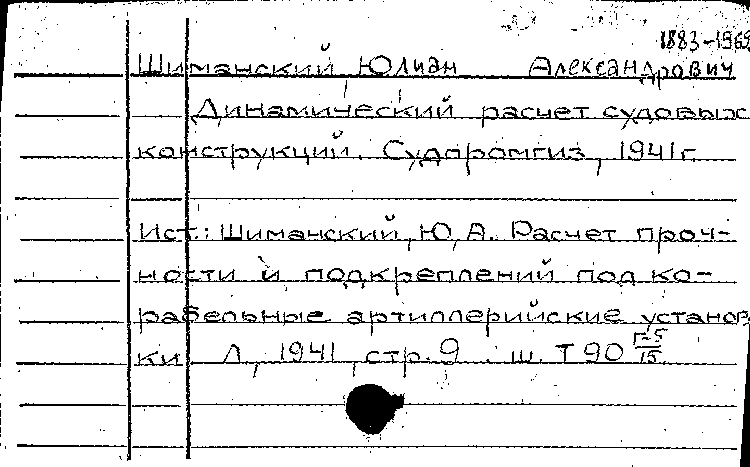 1883-1962
Шиманский Юлиан Александрович
Динамический расчет судовых
конструкций. Судпромгиз, 1941 г.
Ист.: Шиманский, Ю, А. Расчет проч-
ности и подкреплений под ко-
рабельные артиллерийские установ
ки Л, 1941, стр. 9 ш. Т 90 Г-5/15